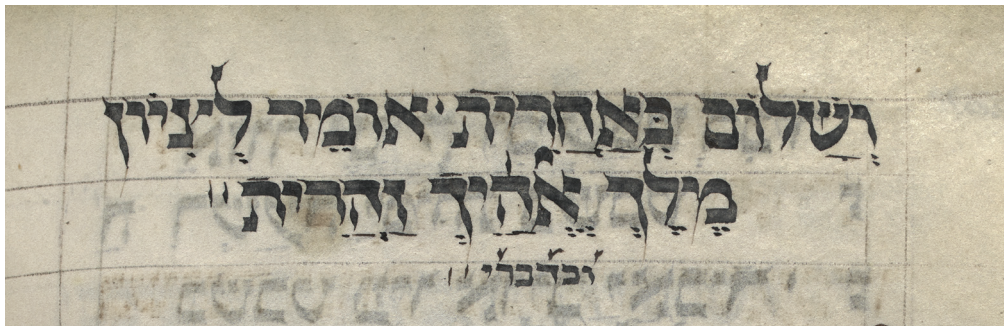 ושלום באחרית · אומר לציון
מלך אלהיך והרית
וכדברי